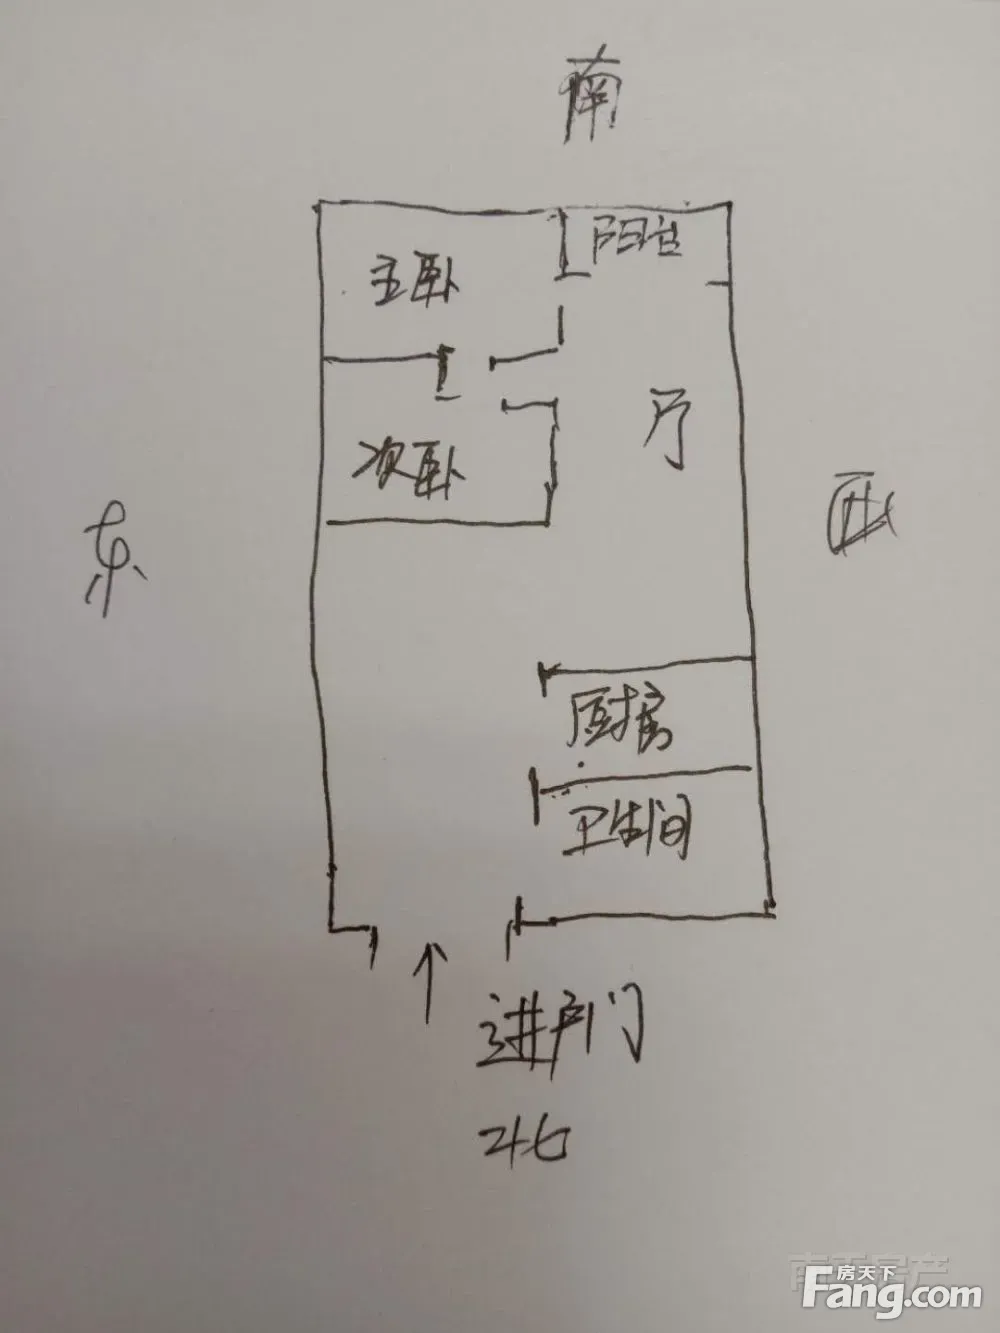 南
阳台
主卧
厅
次卧
西
东
厨房
卫生间
进户门
北
房天下
Fang.com